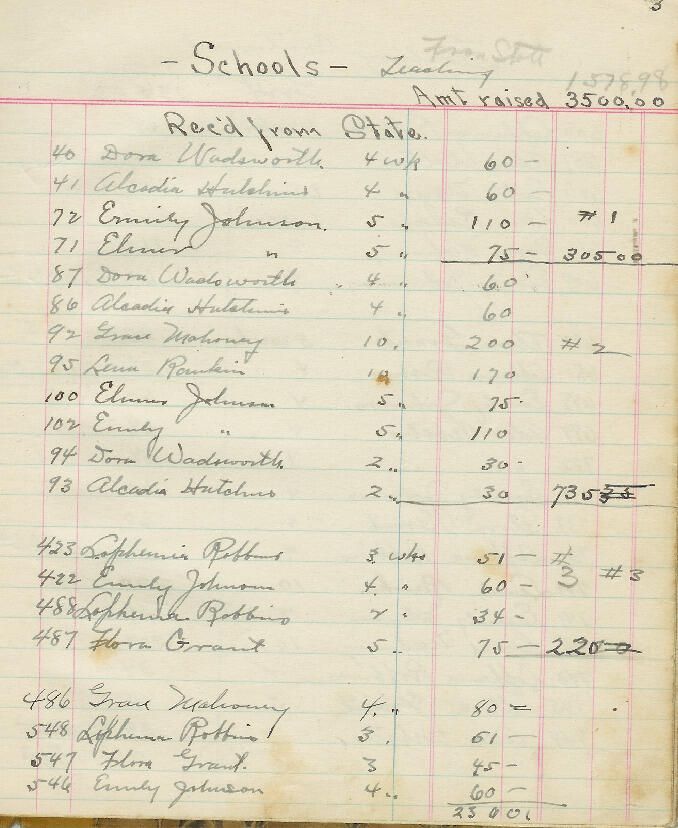 3
From State
- Schools - Teaching 1578.98
Amt raised 3500.00
Rec'd from State.
40 Dora Wadsworth. 4 wk 60 -
41 Alcadia Hutchins 4 " 60 -
72 Emmily Johnson. 5 " 110 - #1
71 Elmer " 5 " 75 - 305 00
87 Dora Wadsworth " 4 " 60
86 Alcadia Hutchins 4 " 60
92 Grace Mahoney 10. 200 #2
95 Lena Rankin 10 170
100 Elmer Johnson 5 " 75
102 Emily " 5 " 110
94 Dora Wadsworth 2 " 30
93 Alcadia Hutchins 2 " 30 735
423 Lophemia Robbins 3 wks 51 - #
422 Emily Johnson 4 " 60 - 3 #3
488 Lophemia Robbins 2 " 34 -
487 Flora Grant 5 " 75 - 220
486 Grace Mahoney 4. " 80 =
548 Lophemia Robbins 3. 61 -
547 Flora Grant. 3 45 -
546 Emily Johnson 4 " 60 -